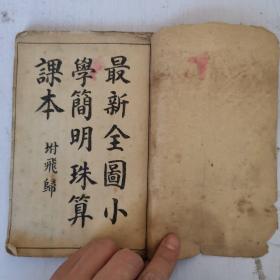 最新全圖小
學簡明珠算
課本
坿飛歸